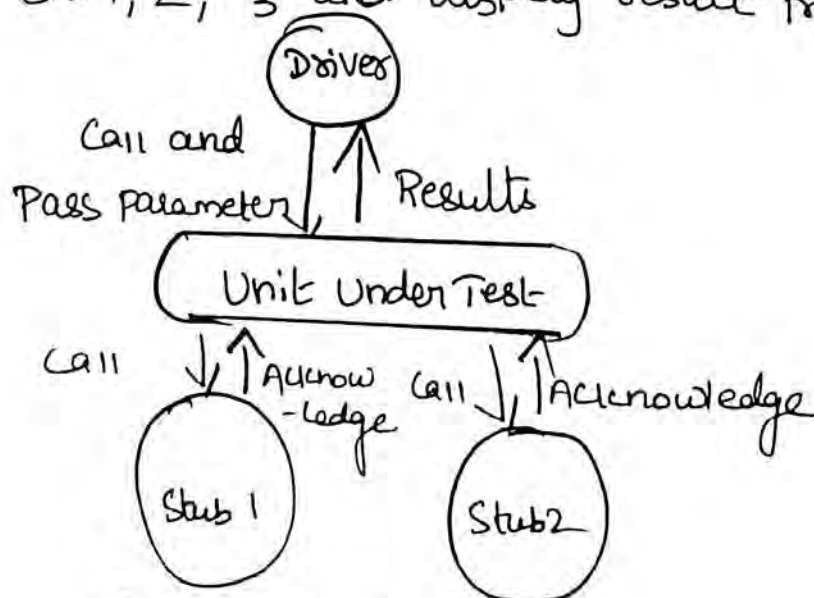 Driver
Call and
Pass Parameter
Results
Unit Under Test
Call
Acknow
-ledge
Call
Acknowledge
Stub 1
Stub2